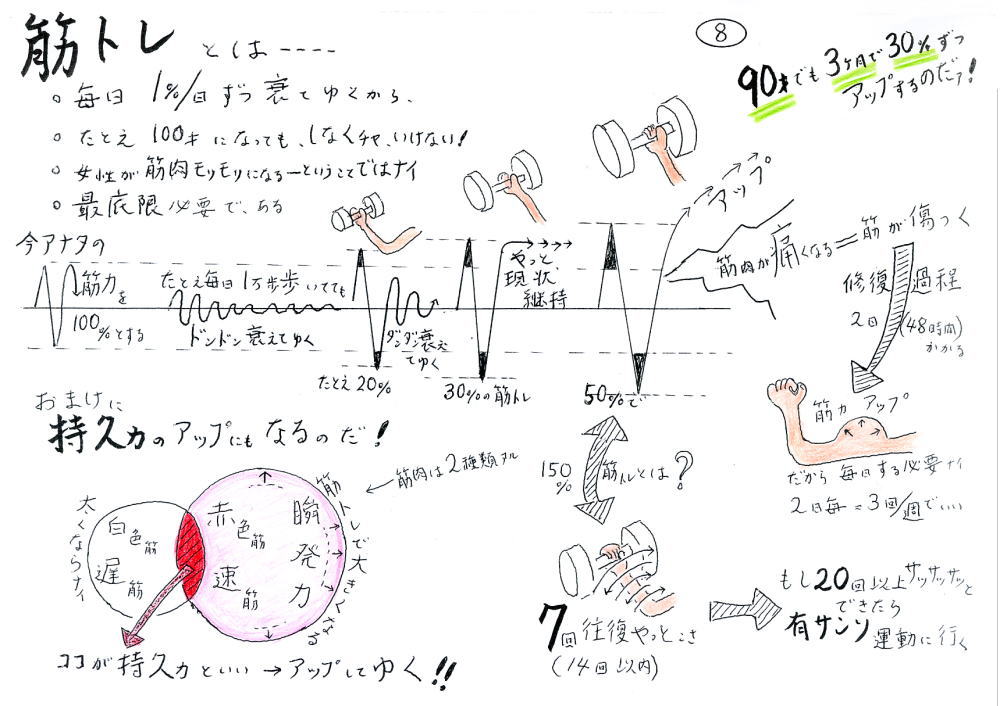 筋トレとは----
8
90才でも3ヶ月で30%ずつ
アップするのだァ!
○毎日 1%/日ずつ衰てゆくから、
○たとえ 100才になっても、しなくチャ、いけない!
○女性が筋肉モリモリになるーということではナイ
○最底限必要で、ある
今アナタの
筋力を
100%とする
たとえ毎日1万歩歩いてても
ドンドン衰えてゆく
たとえ20%
ダンダン衰え
てゆく
30%の筋トレ
やっと
現状
継持
50%で
アップ
筋肉が痛くなる=筋が傷つく
修復過程
2日(48時間)
かかる
筋力アップ
だから毎日する必要ナイ
2日毎=3回/週でいい
おまけに
持久力のアップにもなるのだ!
筋肉は2種類アル
太くならナイ
白色筋
遅筋
赤色筋
速筋
瞬発力
筋トレで大きくなる
ココが持久力といい→アップしてゆく!!
150%
筋トレとは?
7回往復やっとこさ
(14回以内)
もし20回以上サッサッサッと
できたら
有サンソ運動に行く